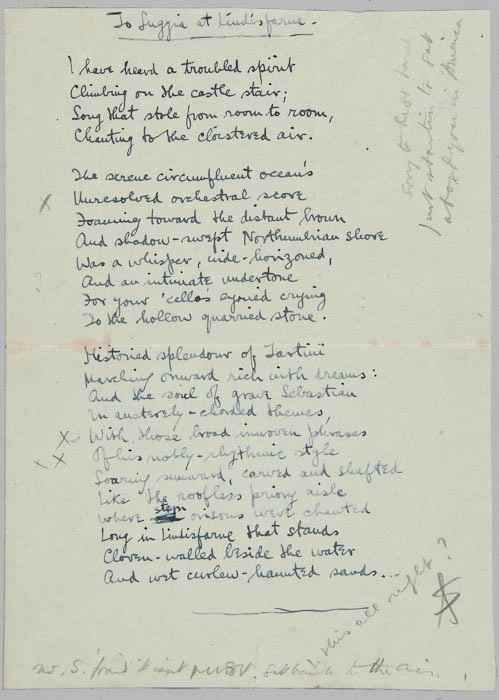 To Suggia at Lindisfarne.
I have heard a troubled spirit
Climbing on the castle stair;
Song that stole from room to room,
Chanting to the cloistered air.
The serene circumfluent ocean's
x Unresolved orchestral score
Foaming toward the distant brown
And shadow-swept Northumbrian shore
Was a whisper, wide-horizoned,
And an intimate undertone
For your 'cello's crying
To the hollow quarried stone.
Historied splendour of Tartini
Marching onward rich with dreams:
And the soul of grave Sebastian
In austerely-chorded themes,
x With those broad inwoven phrases
x x Of his nobly-rhythmic style
Soaring sunward, carved and shafted
Like the roofless priory aisle
Where stern orisons were chanted
Long in Lindisfarne that stands
Cloven-walled beside the water
And wet curlew-haunted sands...
this all right?
Mr. S. to the air.
sorry to have
just to
about you in America